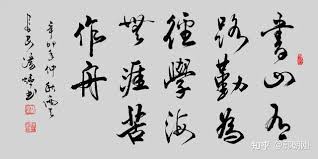 書山有
路勤為
徑學海
無涯苦
作舟
辛卯年仲秋
書
知乎